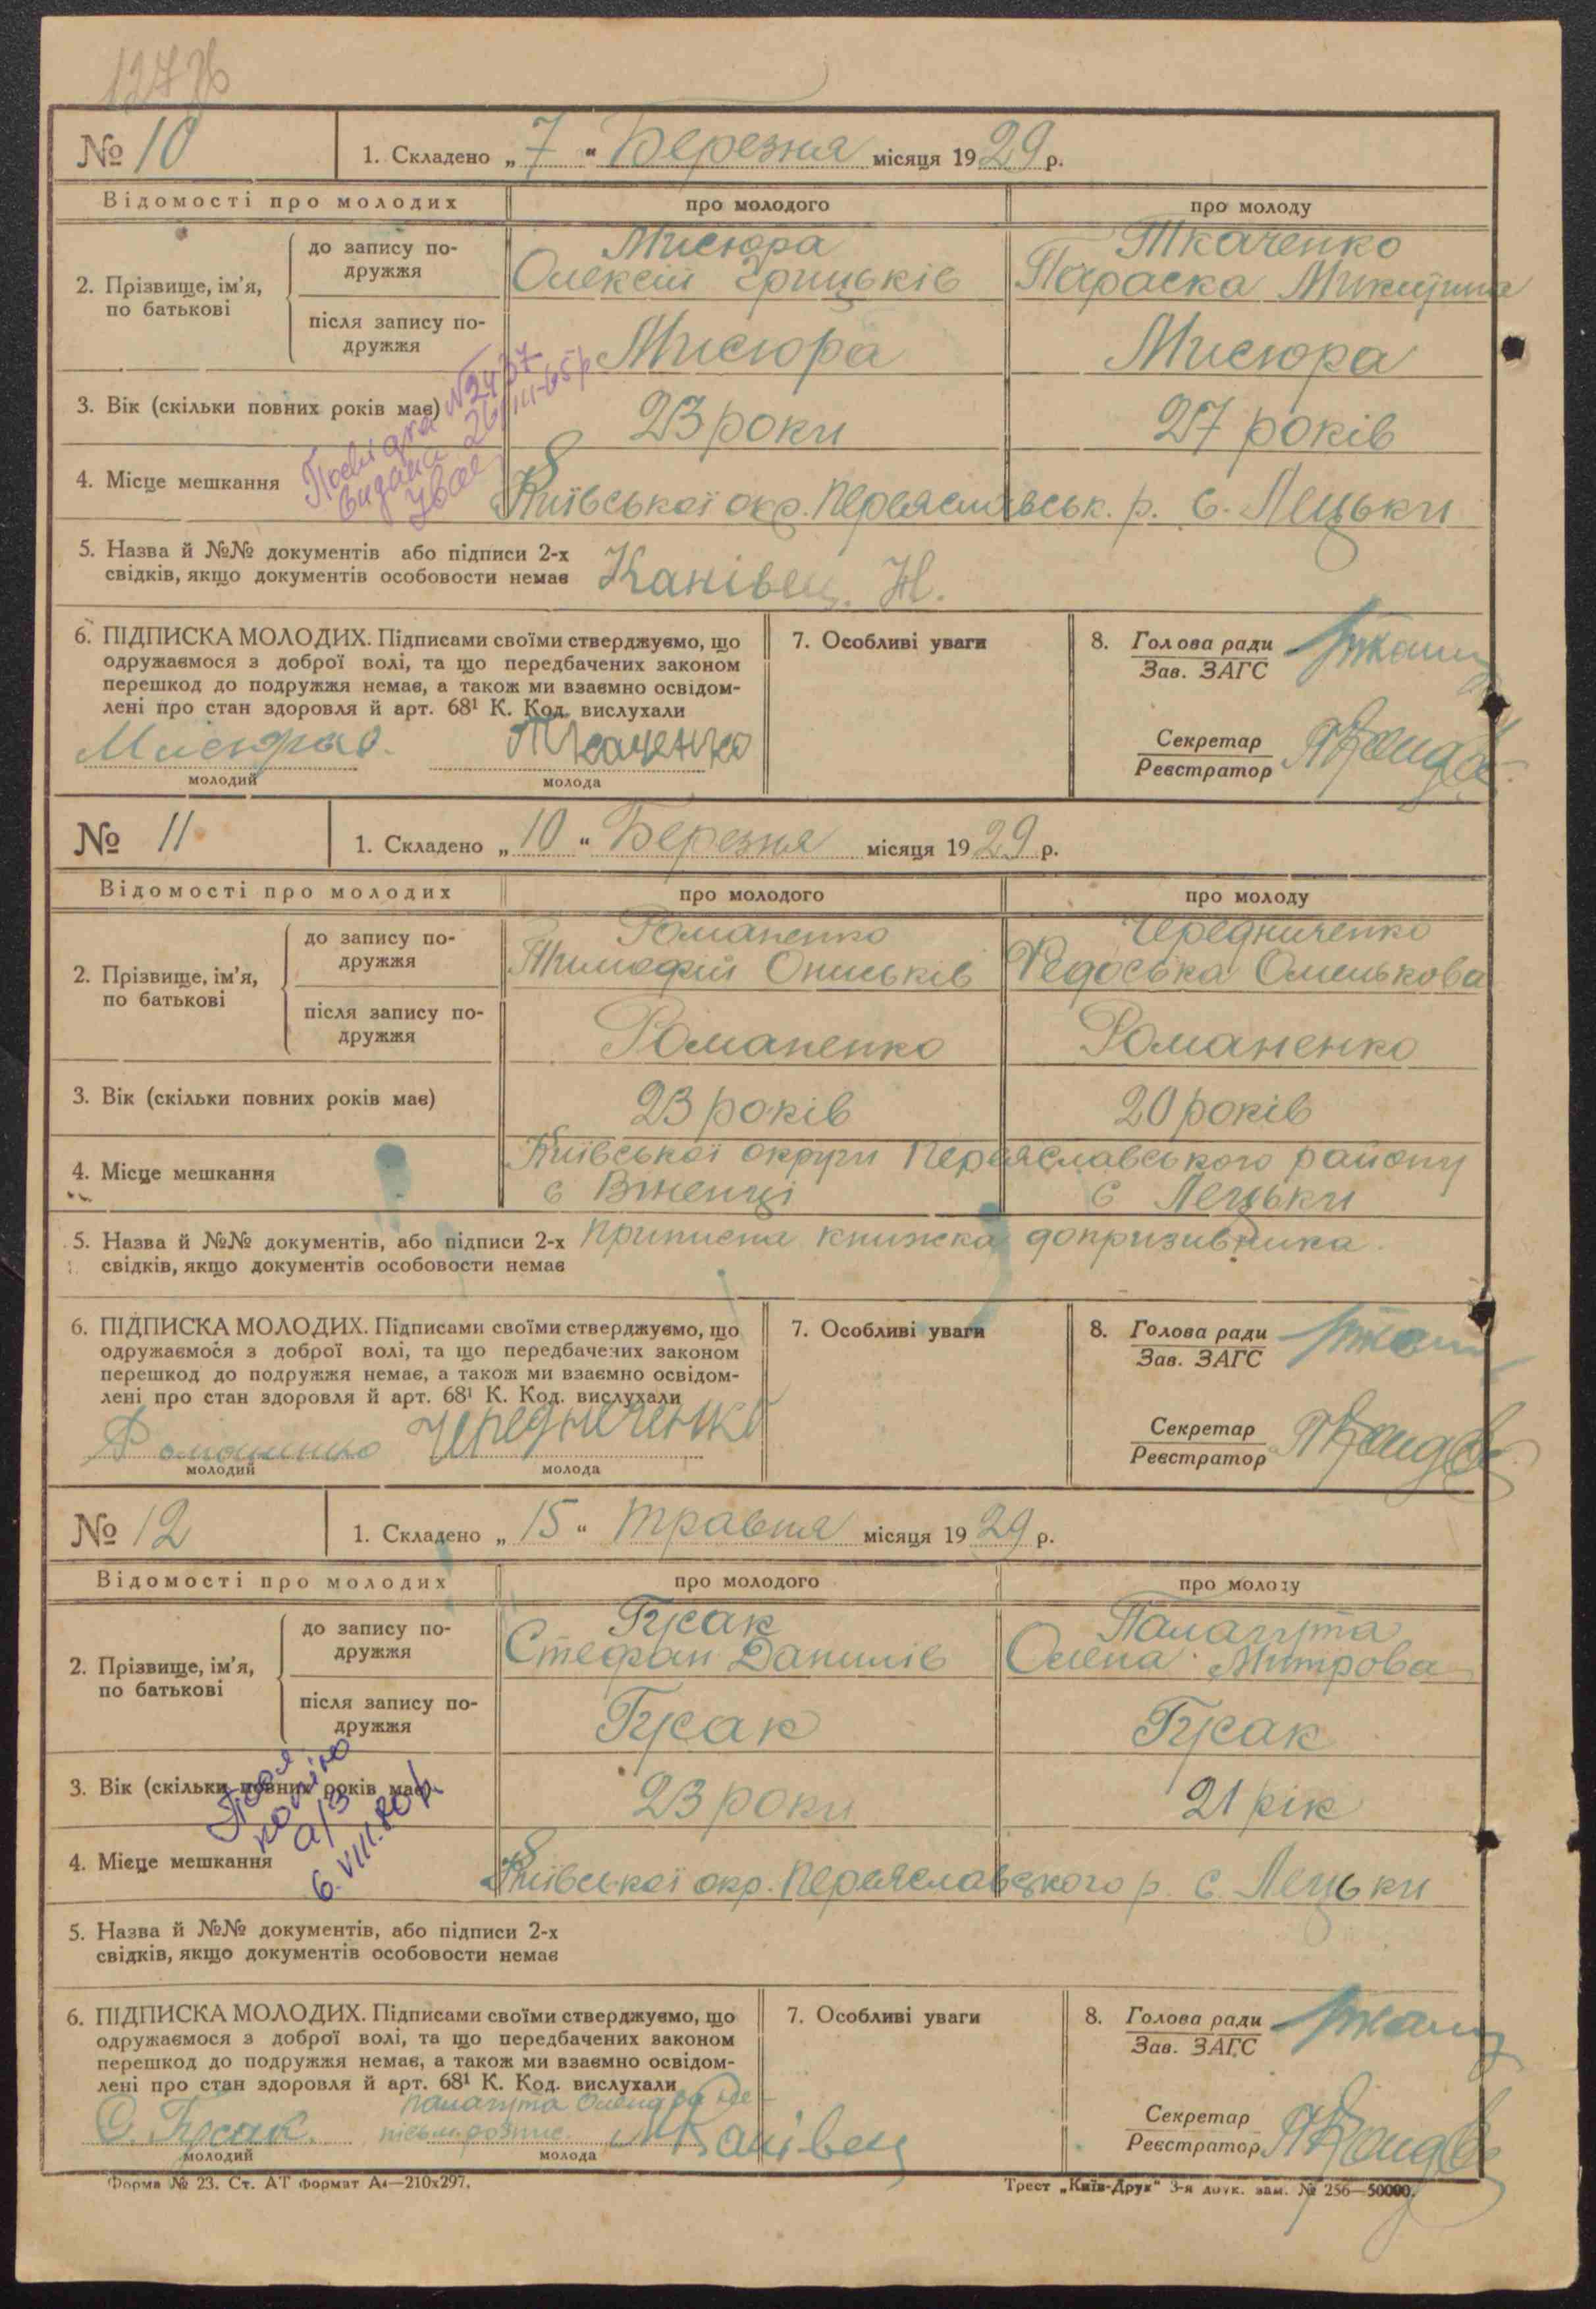 № 10
1. Складено „ 7 “ Березня місяця 1929 р.
Відомості про молодих
про молодого
про молоду
2. Прізвище, ім’я, по батькові
до запису подружжя
Мисюра
Олексій Грицьків
Ткаченко
Параска Микитина
після запису подружжя
Мисюра
Мисюра
3. Вік (скільки повних років має)
23 роки
27 років
Посвідка №2437
видана 26/III-65р
4. Місце мешкання
Київської окр. Переяславськ. р. с. Лецьки
5. Назва й №№ документів або підписи 2-х
свідків, якщо документів особовости немає
Канівец. Н.
6. ПІДПИСКА МОЛОДИХ. Підписами своїми стверджуємо, що
одружаємося з доброї волі, та що передбачених законом
перешкод до подружжя немає, а також ми взаємно освідом-
лені про стан здоровля й арт. 68¹ К. Код. вислухали
Мисюра О. Ткаченко
молодий молода
7. Особливі уваги
8. Голова ради
Зав. ЗАГС
Секретар
Реєстратор
№ 11
1. Складено „ 10 “ Березня місяця 1929 р.
Відомості про молодих
про молодого
про молоду
2. Прізвище, ім’я, по батькові
до запису подружжя
Романенко
Тимофій Ониськів
Чередниченко
Федоська Омелькова
після запису подружжя
Романенко
Романенко
3. Вік (скільки повних років має)
23 років
20 років
4. Місце мешкання
Київської округи Переяславського району
с Вженці
с Лецьки
5. Назва й №№ документів, або підписи 2-х
свідків, якщо документів особовости немає
Приписна книжка допризивника
6. ПІДПИСКА МОЛОДИХ. Підписами своїми стверджуємо, що
одружаємося з доброї волі, та що передбачених законом
перешкод до подружжя немає, а також ми взаємно освідом-
лені про стан здоровля й арт. 68¹ К. Код. вислухали
Романенко Чередниченко
молодий молода
7. Особливі уваги
8. Голова ради
Зав. ЗАГС
Секретар
Реєстратор
№ 12
1. Складено „ 15 “ травня місяця 1929 р.
Відомості про молодих
про молодого
про молоду
2. Прізвище, ім’я, по батькові
до запису подружжя
Гусак
Стефан Данилів
Палагута
Олена Митрова
після запису подружжя
Гусак
Гусак
3. Вік (скільки повних років має)
23 роки
21 рік
а/з
6.VIII.80р
4. Місце мешкання
Київської окр. Переяславського р. с. Лецьки
5. Назва й №№ документів, або підписи 2-х
свідків, якщо документів особовости немає
6. ПІДПИСКА МОЛОДИХ. Підписами своїми стверджуємо, що
одружаємося з доброї волі, та що передбачених законом
перешкод до подружжя немає, а також ми взаємно освідом-
лені про стан здоровля й арт. 68¹ К. Код. вислухали
Палагута Олена
С. Гусак. Канівец
молодий молода
7. Особливі уваги
8. Голова ради
Зав. ЗАГС
Секретар
Реєстратор
Форма № 23. Ст. АТ формат А4—210х297.
Трест „Київ-Друк“ 3-я друк. зам. № 256—50000.